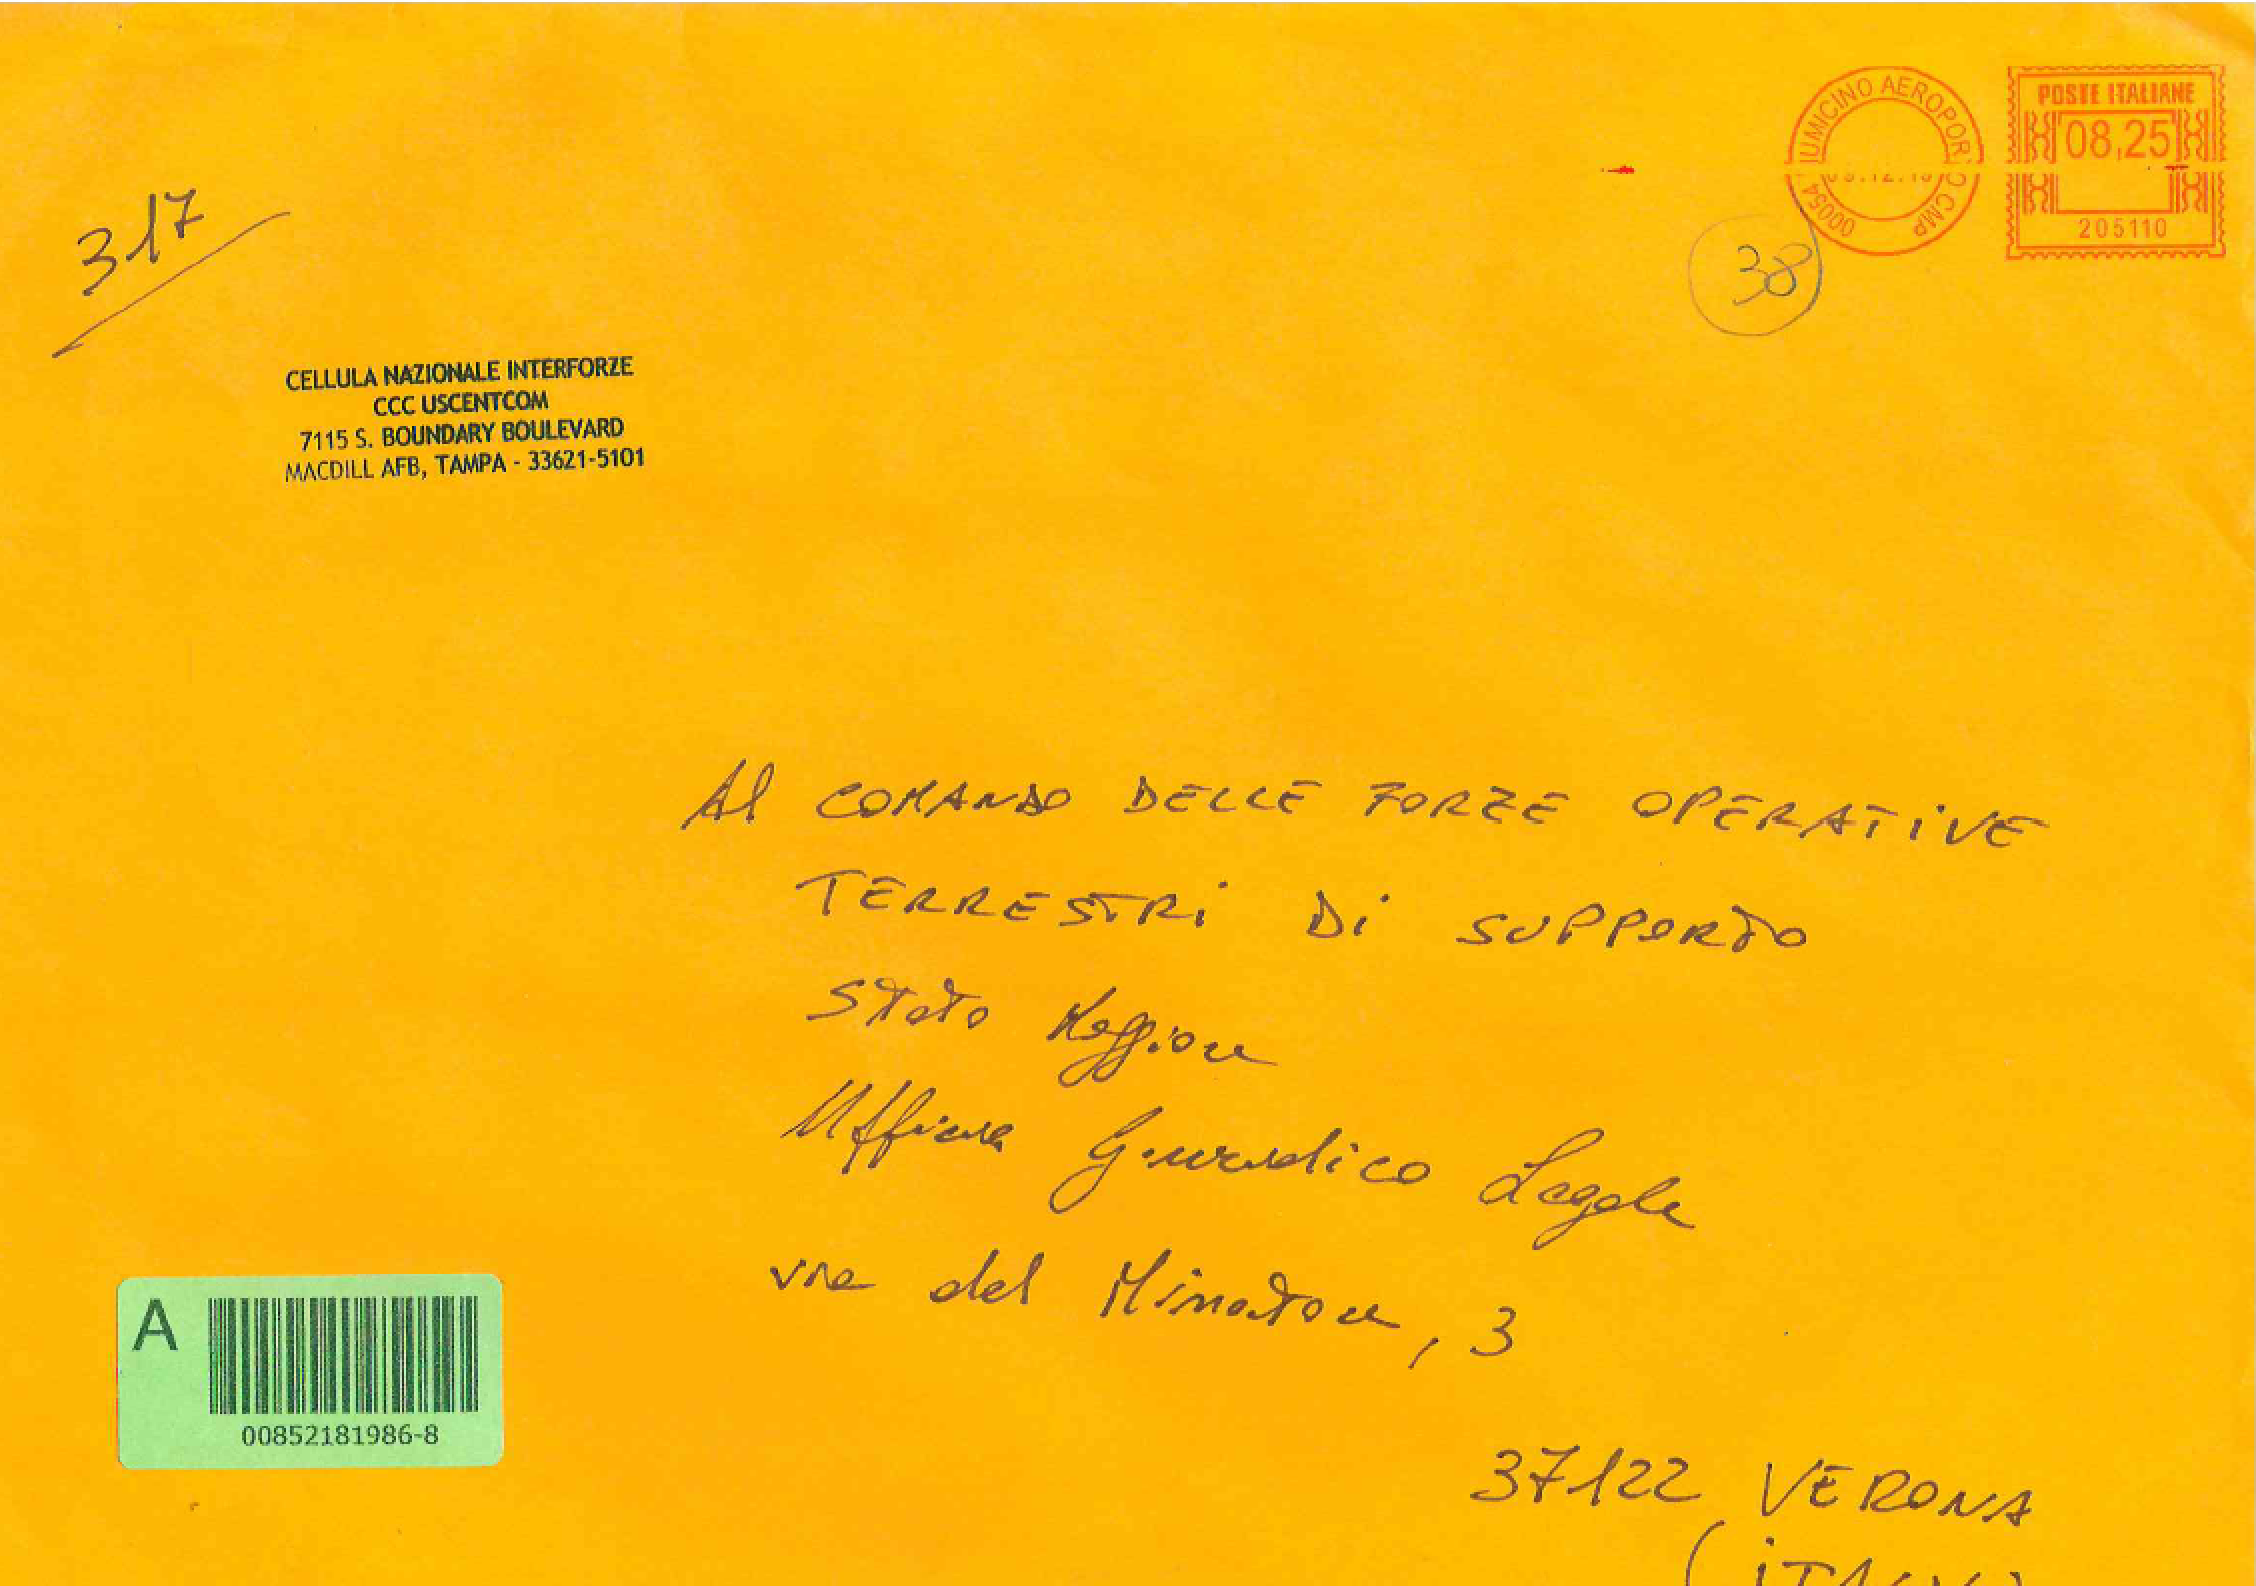 317
UMICINO AEROPOR O CMP 00054
POSTE ITALIANE
08,25
205110
38
CELLULA NAZIONALE INTERFORZE
CCC USCENTCOM
7115 S. BOUNDARY BOULEVARD
MACDILL AFB, TAMPA - 33621-5101
Al COMANDO DELLE FORZE OPERATIVE
TERRESTRI Di SUPPORTO
Stato Maggiore
Ufficio Giuridico Legale
via del Minatore, 3
A
00852181986-8
37122 VERONA
(iTALY)